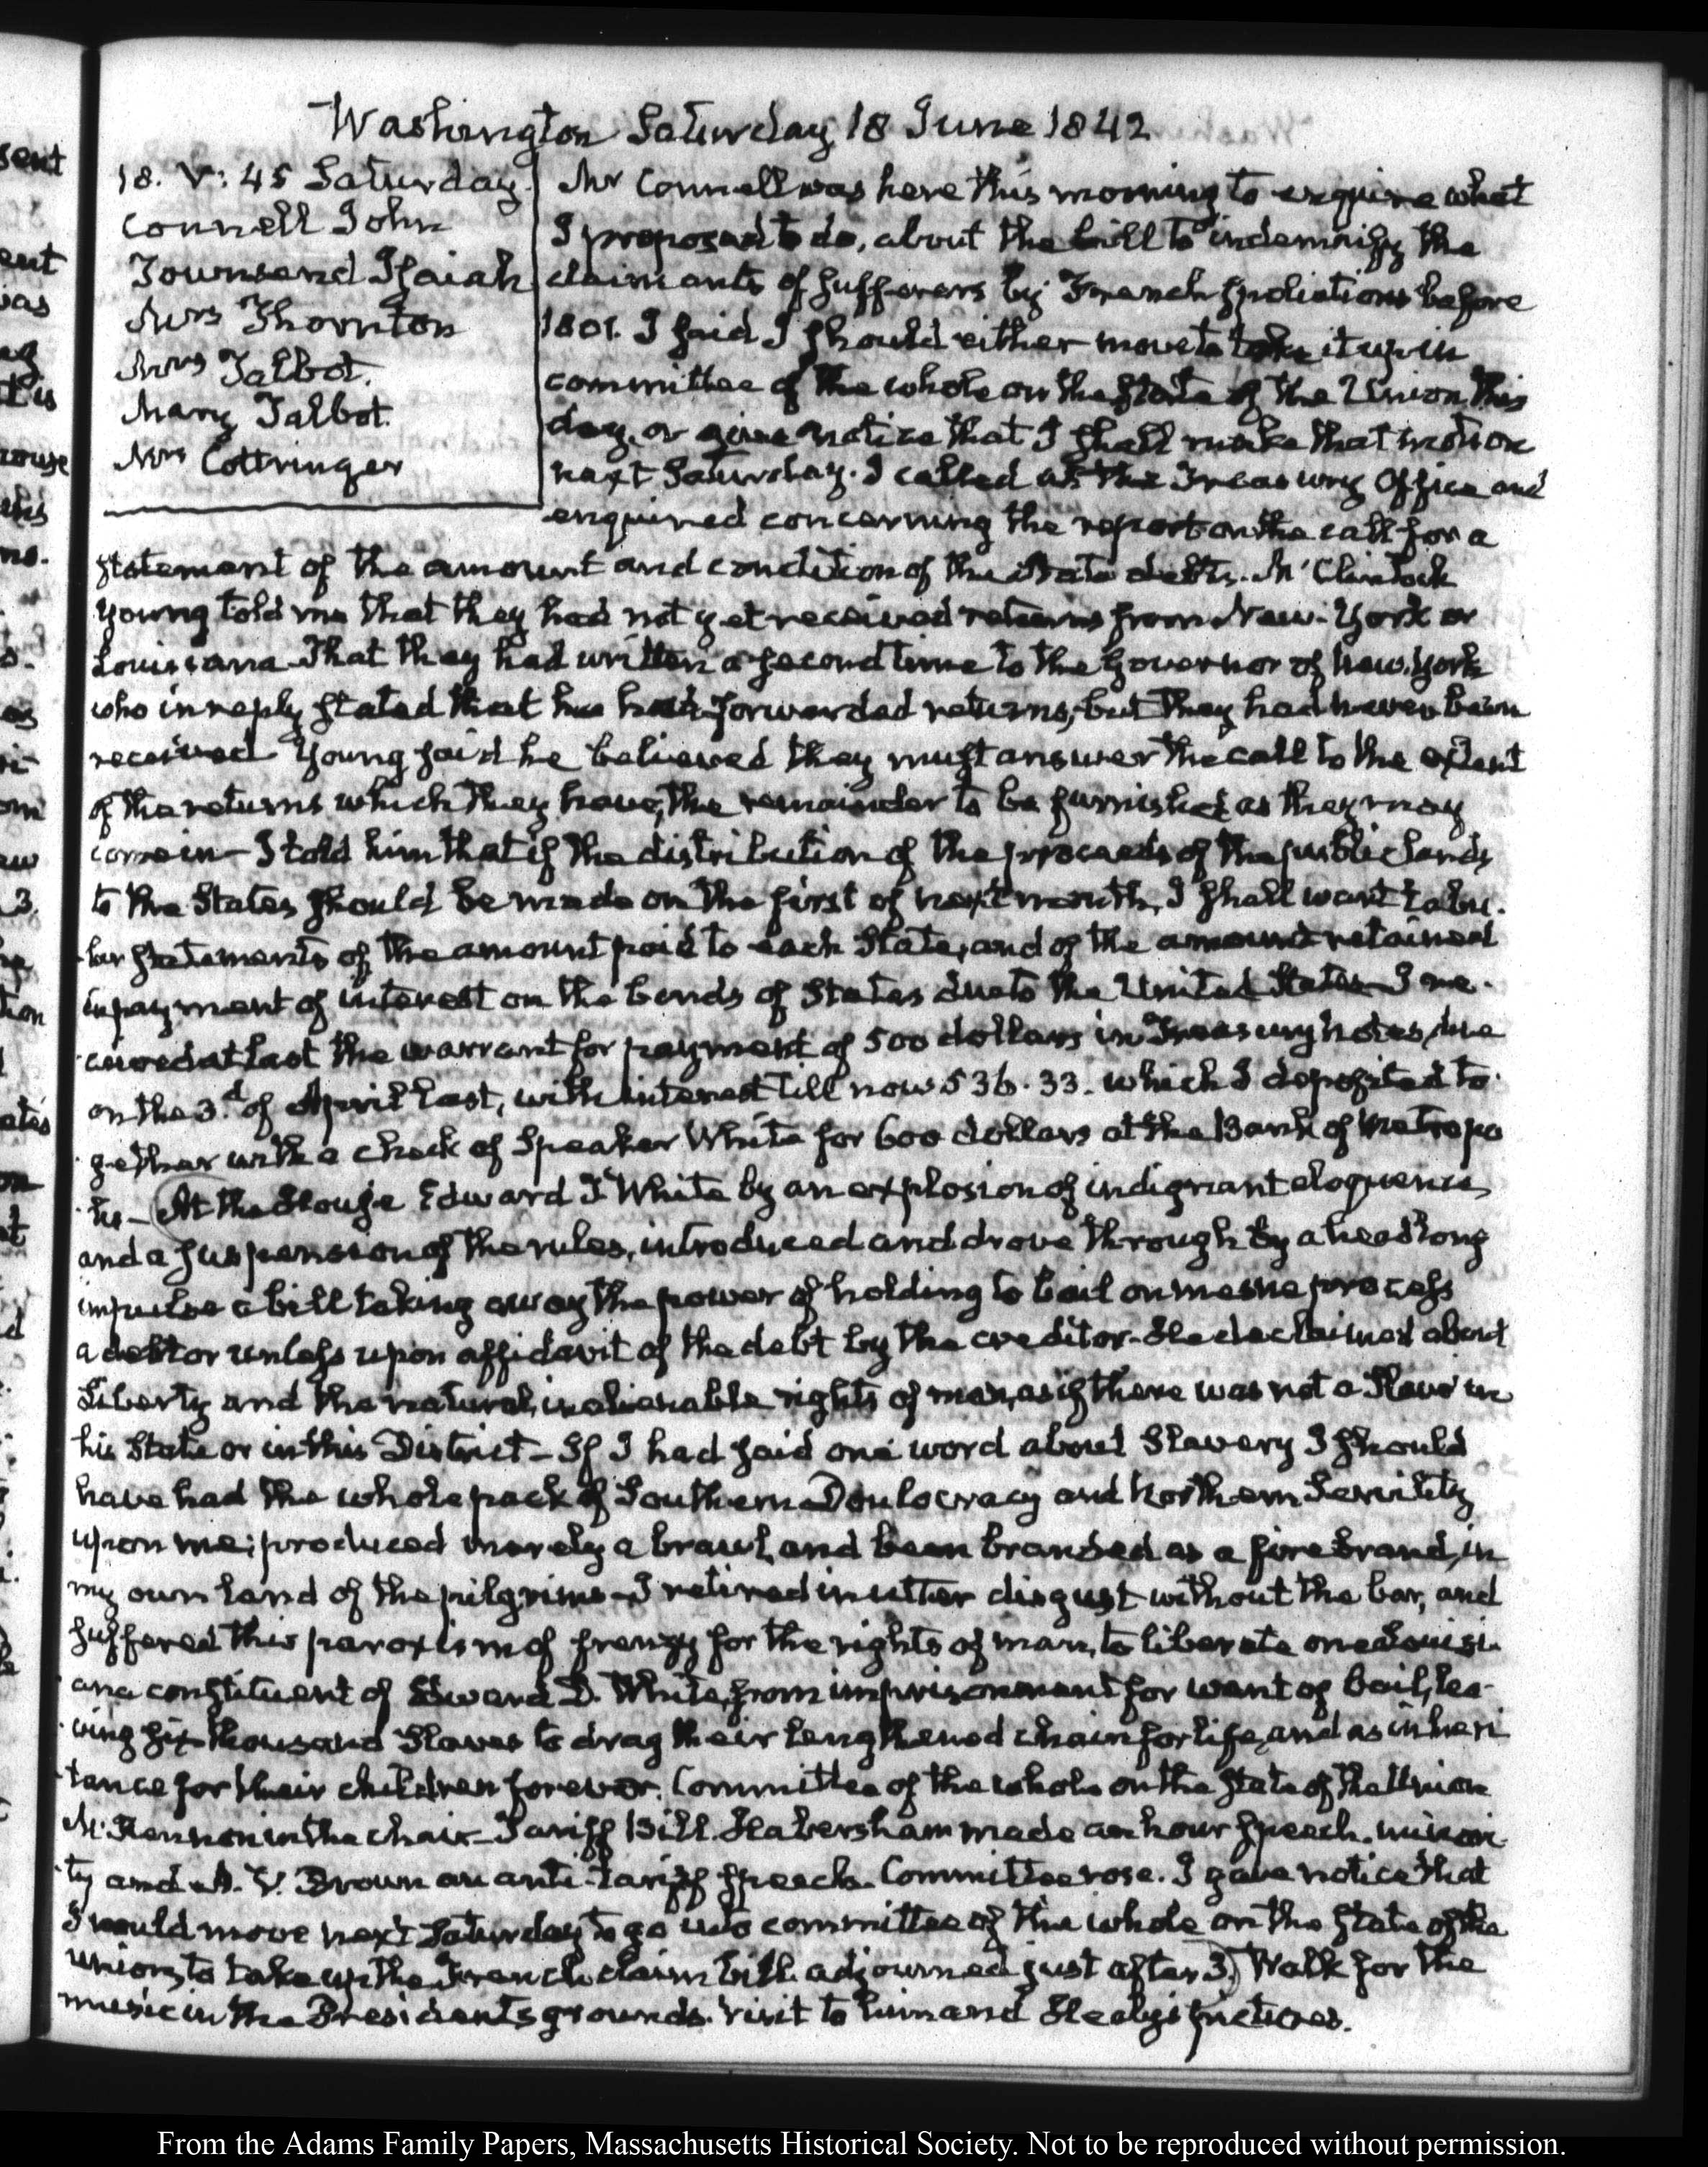 Washington Saturday 18 June 1842
18. V: 45 Saturday.
Connell John
Townsend Isaiah
Mrs Thornton
Mrs Talbot.
Mary Talbot.
Mrs Cottringer
Mr Connell was here this morning to enquire what
I proposed to do, about the bill to indemnify the
claimants of sufferers by French spoliations before
1801. I said I should either move to take it up in
committee of the whole on the State of the Union this
day, or give notice that I shall make that motion
next Saturday. I called at the Treasury Office and
enquired concerning the report on the call for a
statement of the amount and condition of the State debts. McClintock
Young told me that they had not yet received returns from New-York or
Louisiana. That they had written a second time to the Governor of New. York
who in reply stated that he had forwarded returns, but they had never been
received Young said he believed they must answer the call to the extent
of the returns which they have, the remainder to be furnished as they may
come in — I told him that if the distribution of the proceeds of the public lands
to the States should be made on the first of next month, I shall want tabu-
lar statements of the amount paid to each State, and of the amount retained
in payment of interest on the bonds of States due to the United States — I re-
ceived at last the warrant for payment of 500 dollars in Treasury notes, due
on the 3.d of April last, with interest till now 536. 33. which I deposited to-
gether with a check of Speaker White for 600 dollars at the Bank of Metropo
lis — (At the House Edward D White by an explosion of indignant eloquence
and a suspension of the rules, introduced and drove through by a headlong
impulse a bill taking away the power of holding to bail on mesne process
a debtor unless upon affidavit of the debt by the creditor. He declaimed about
Liberty and the natural, inalienable rights of man, as if there was not a Slave in
his State or in this District — If I had said one word about Slavery I should
have had the whole pack of Southern Doulocracy and Northern Servility
upon me; produced merely a brawl, and been branded as a firebrand, in
my own land of the pilgrims — I retired in utter disgust without the bar, and
suffered this paroxism of frenzy for the rights of man, to liberate one Louisi-
ana constituent of Edward D. White, from imprisonment for want of bail, lea-
ving six thousand Slaves to drag their lengthened chain for life, and as inheri
tance for their children forever. Committee of the whole on the State of the Union
McKennon in the chair — Tariff Bill. Habersham made an hour speech. minori-
ty and A. V. Brown an anti-tariff speech. Committee rose. I gave notice that
I would move next Saturday to go into committee of the whole on the State of the
Union, to take up the French claim bill. adjourned just after 3.) Walk for the
music in the President's grounds. Visit to him and Healy's pictures.
From the Adams Family Papers, Massachusetts Historical Society. Not to be reproduced without permission.